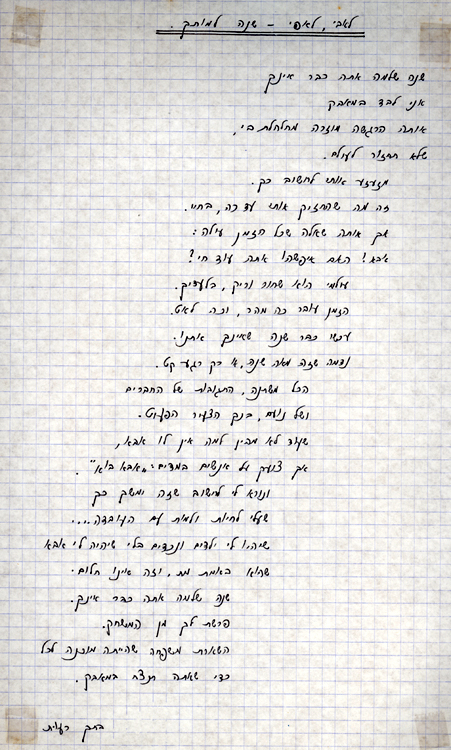 לאבי, לאפי - שנה למותך.
שנה שלמה אתה כבר אינך
אני לבד במאבק
אותה הרגשה מוזרה מחלחלת בי,
שלא תחזור לעולם.
מזעזע אותי לחשוב כך.
זה מה שהחזיק אותי עד כה, בחיי.
אך אותה שאלה שכל הזמן עולה:
אבא! האם איפשהו אתה עוד חי?
עולמי הוא שחור וריק, בלעדיך.
הזמן עובר כה מהר, וכה לאט.
עכשו כבר שנה שאינך אתנו.
נדמה שזה מאה שנה, או רק רגע קט.
הכל משתנה, התגובות של החברים
ושל נועם, בנך הצעיר הפעוט.
שעוד לא מבין למה אין לו אבא,
אך צועק על אנשים במדים: "אבא בוא".
ונורא לי לחשוב שזה ימשך כך
שעלי לחיות ולמות עם העובדה...
שיהיו לי ילדים ונכדים בלי שיהיה לי אבא
שהוא באמת מת, וזה אינו חלום.
שנה שלמה אתה כבר אינך.
פרשת לך מן המשחק.
השארת משפחה שהייתה מוכנה לכל
כדי שאתה תנצח במאבק.
בתך רעות